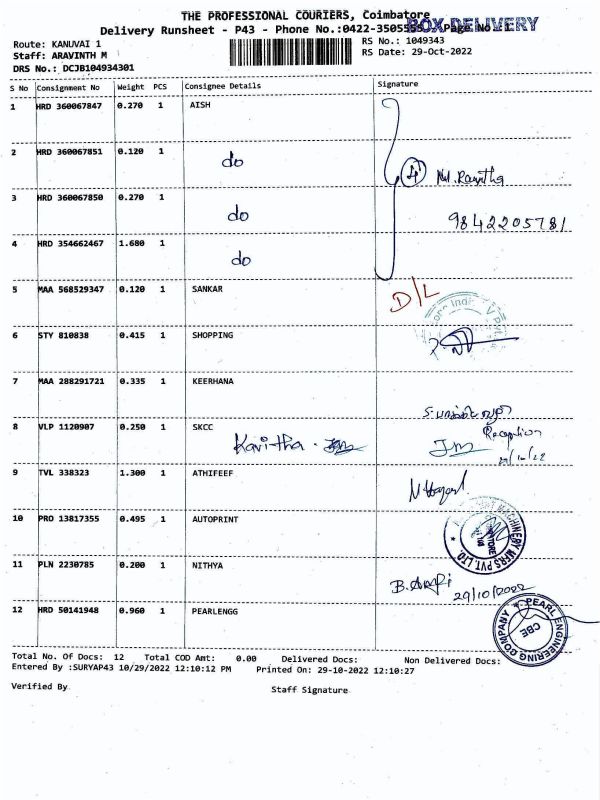 THE PROFESSIONAL COURIERS, Coimbatore
BOX DELIVERY
Delivery Runsheet - P43 - Phone No.:0422-3505555 Page No. 1
Route: KANUVAI 1
RS No.: 1049343
Staff: ARAVINTH M
RS Date: 29-Oct-2022
DRS No.: DCJB104934301
S No Consignment No Weight PCS Consignee Details Signature
1 HRD 360067847 0.270 1 AISH
2 HRD 360067851 0.120 1 do
3 HRD 360067850 0.270 1 do 9842205781
4 HRD 354662467 1.680 1 do
5 MAA 568529347 0.120 1 SANKAR D/L
6 STY 810838 0.415 1 SHOPPING
7 MAA 288291721 0.335 1 KEERHANA
8 VLP 1120907 0.250 1 SKCC Kavitha Reception
9 TVL 338323 1.300 1 ATHIFEEF
10 PRO 13817355 0.495 1 AUTOPRINT
MACHINERY MFRS PVT. LTD.
11 PLN 2230785 0.200 1 NITHYA
29/10/2022
12 HRD 50141948 0.960 1 PEARLENGG
PEARL ENGINEERING COMPANY
CBE
Total No. Of Docs: 12 Total COD Amt: 0.00 Delivered Docs: Non Delivered Docs:
Entered By :SURYAP43 10/29/2022 12:10:12 PM Printed On: 29-10-2022 12:10:27
Verified By Staff Signature